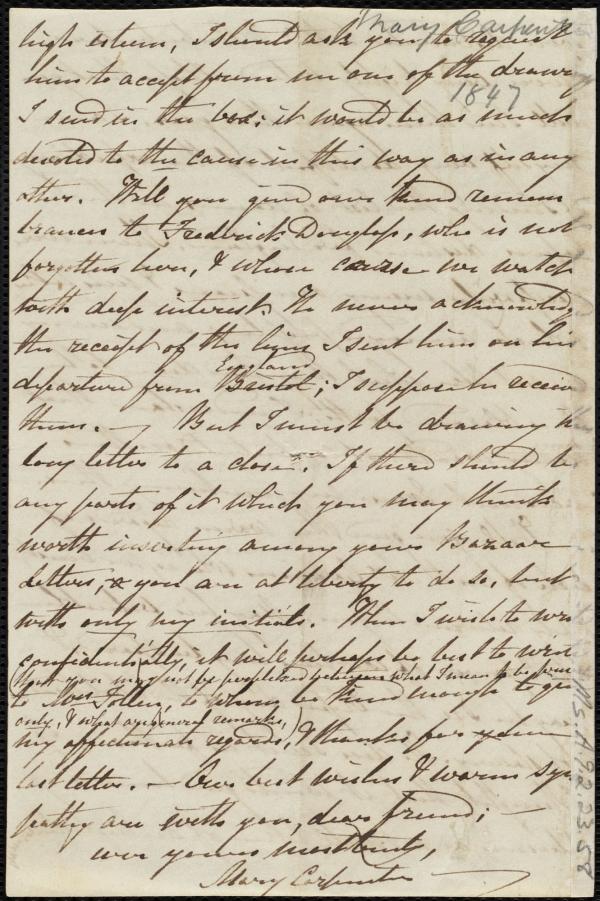 Mary Carpenter
high esteem, I should ask you to request
him to accept from me one of the drawgs
1847
I send in the box; it would be as much
devoted to the cause in this way as in any
other. Will you give our kind remem
brances to Frederick Douglass, who is not
forgotten here, & whose course we watch
with deep interest. He never acknowledg
the receipt of the lines I sent him on his
England
departure from Bristol; I suppose he receiv
them. — But I must be drawing th
long letter to a close. If there should be
any parts of it which you may think
worth inserting among your Bazaar
letters, you are at liberty to do so, but
with only my initials. When I wish to wri
confidentially, it will perhaps be best to write
(that you may not be perplexed between what I mean to be priv
to Mrs Follen, to whom be kind enough to give
only, & what are general remarks,)
my affectionate regards, & thanks for
last letter. — Our best wishes & warm sym
pathy are with you, dear friend; —
ever yours most truly,
Mary Carpenter
MS.A.9.2.23.58